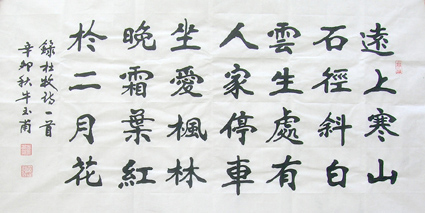 遠上寒山
石徑斜白
雲生處有
人家停車
坐愛楓林
晚霜葉紅
於二月花
錄杜牧诗一首
辛卯秋牛玉甫